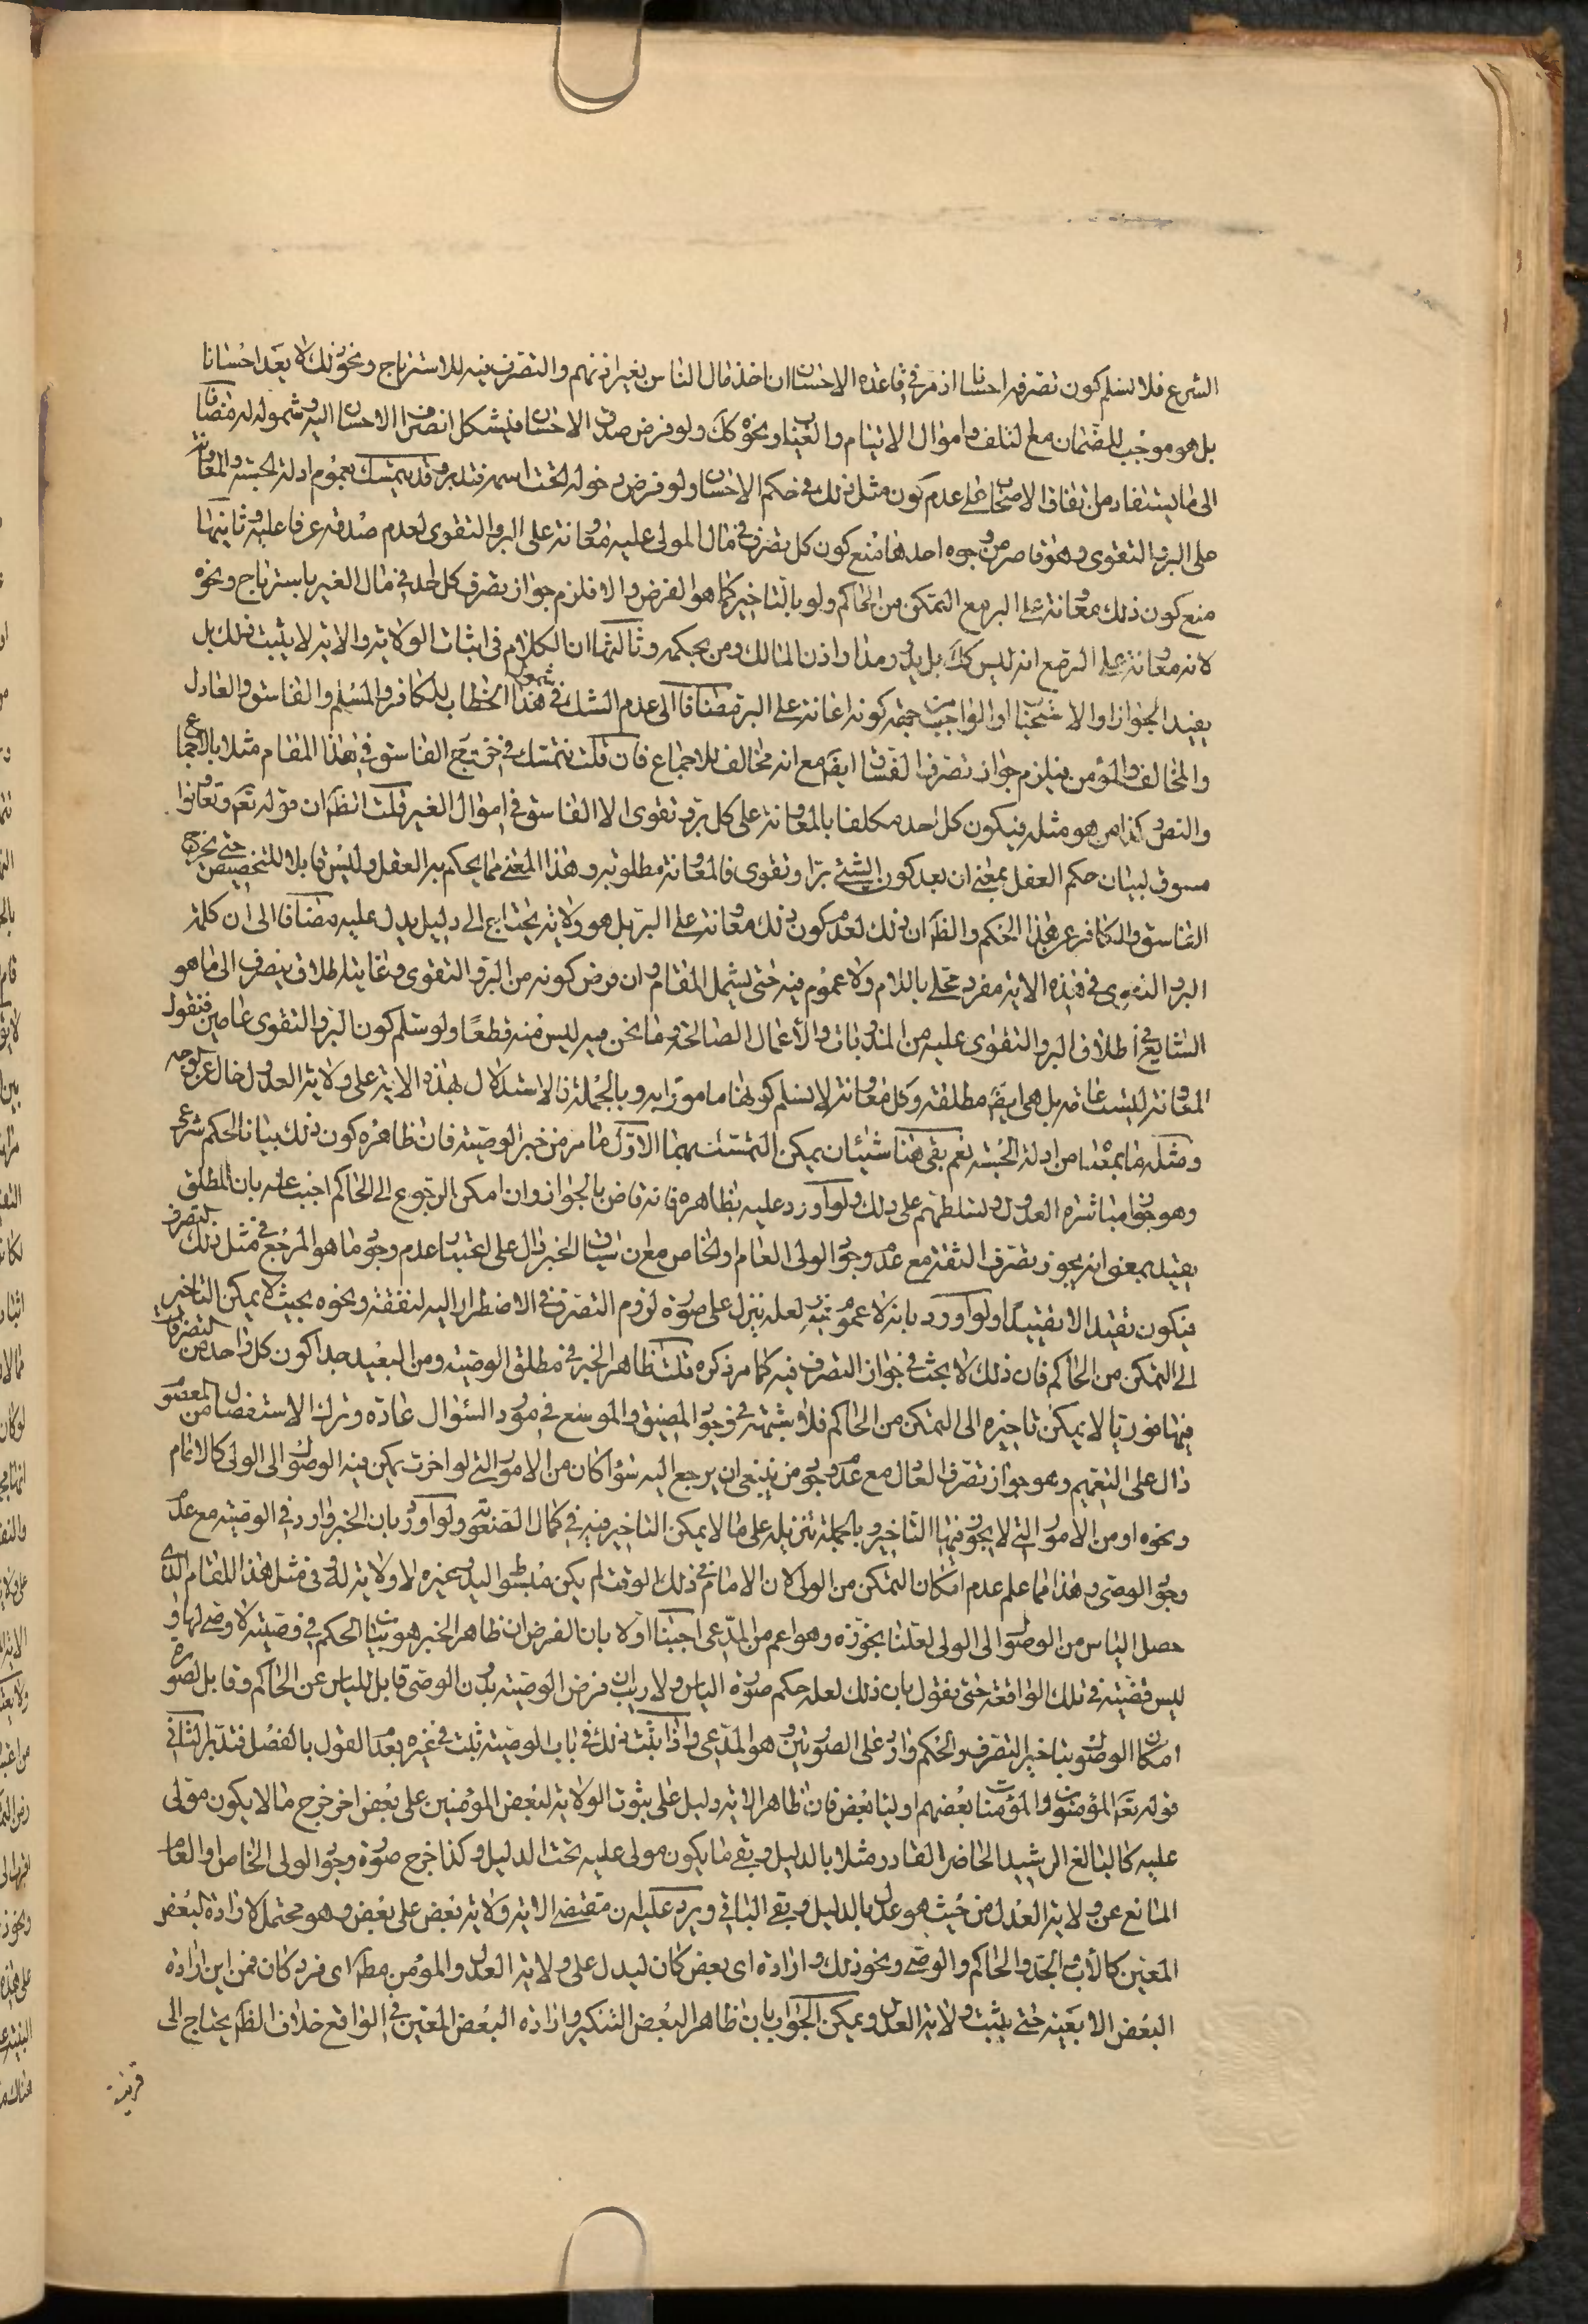 الشرع فلا نسلم كون تصرفه احسانا اذ مر في قاعده الاحسان ان اخذ مال الناس بغير اذنهم والتصرف فيه للاسترباح ونحو ذلك لا يعد احسانا
بل هو موجب للضمان مع التلف واموال الايتام والغيب ونحوه كك ولو فرض صدق الاحسان فيشكل انصراف الاحسان اليه وشموله له مضافا
الى ما يستفاد من اتفاق الاصحاب على عدم كون مثل ذلك في حكم الاحسان ولو فرض دخوله تحت اسمه فتدبر وقد يتمسك بعموم ادلة الحسبة والمعاونة
على البر والتقوى وهو قاصر من وجوه احدها منع كون كل تصرف في مال المولى عليه معاونة على البر والتقوى لعدم صدقه عرفا عليه وثانيها
منع كون ذلك معاونة على البر مع التمكن من الحاكم ولو بالتاخير كما هو الفرض والا فلزم جواز تصرف كل احد في مال الغير باسترباح ونحوه
لانه معاونة على البر مع انه ليس كك بل يدور مدار اذن المالك ومن بحكمه وثالثها ان الكلام في اثبات الولاية والاية لا يثبت ذلك بل
يفيد الجواز او الاستحباب او الواجب من جهة كونه اعانة على البر مضافا الى عدم الشك في شمول هذا الخطاب للكافر والمسلم والفاسق والعادل
والمخالف والمؤمن فيلزم جواز تصرف الفساق ايضا مع انه مخالف للاجماع فان قلت نتمسك في خروج الفاسق في هذا المقام مثلا بالاجماع
والنص وكذا من هو مثله فيكون كل احد مكلفا بالمعاونة على كل بر وتقوى الا الفاسق في اموال الغير قلت الظ ان قوله تع وتعاونوا
مسوق لبيان حكم العقل بمعنى ان بعد كون الشئ برا وتقوى فالمعاونة مطلوبه وهذا المعنى مما يحكم به العقل وليس قابلا للتخصيص حتى يخرج
الفاسق والكافر عن هذا الحكم والظ ان ذلك لعدم كون ذلك معاونة على البر بل هو ولاية يحتاج الى دليل يدل عليه مضافا الى ان كلمة
البر والتقوى في هذه الاية مفرد محلى باللام ولا عموم فيه حتى يشمل المقام وان فرض كونه من البر والتقوى وغايته اطلاق ينصرف الى ما هو
الشايع في اطلاق البر والتقوى عليه من المندوبات والاعمال الصالحة وما نحن فيه ليس منه قطعا ولو سلم كون البر والتقوى عامين فنقول
المعاونة ليست عامة بل هي ايضا مطلقة وكل معاونة لا نسلم كونها مامورا به وبالجملة فالاستدلال بهذه الاية على ولاية العدول خال عن الوجه
ومثله ما بمعناه من ادلة الحسبة نعم بقي هنا شيئان يمكن التمسك بهما الاول ما مر من خبر الوصية فان ظاهره كون ذلك بيانا لحكم شرعي
وهو جواز مباشرة العدول وتسلطهم على ذلك ولو اورد عليه بظاهره فانه قاض بالجواز وان امكن الرجوع الى الحاكم اجيب عنه بان المطلق
يقيد بمعنى انه يجوز تصرف الثقة مع عدم وجود الولى العام او الخاص مع ان سياق الخبر دال على اعتبار عدم وجود ما هو المرجع في مثل ذلك التصرف
فيكون تقيدا لا تقييدا ولو اورد بانه لا عموم فيه لعله ينزل على صورة لزوم التصرف والاضطرار اليه لنفقة ونحوه بحيث لا يمكن التاخير
الى التمكن من الحاكم فان ذلك لا بحث في جواز التصرف فيه كما مر ذكره قلت ظاهر الخبر في مطلق الوصية ومن البعيد جدا كون كل واحد من التصرفات
فيها فوريا لا يمكن تاخيره الى التمكن من الحاكم فلا شبهة في وجود المضيق والموسع في مورد السؤال عادة وترك الاستفصال من المعصوم
دال على التعميم وهو جواز تصرف العدل مع عدم وجود من ينبغي ان يرجع اليه سواء كان من الامور التي لو اخرت يمكن فيه الوصول الى الولى كالامام
ونحوه او من الامور التي لا يجوز فيها التاخير وبالجملة تنزيله على ما لا يمكن التاخير فيه في كمال الصعوبة ولو اورد بان الخبر وارد في الوصية مع عدم
وجود الوصى وهذا مما علم عدم امكان التمكن من الولى لان الامام في ذلك الوقت لم يكن مبسوط اليد وغيره لا ولاية له وفي مثل هذا المقام الذى
حصل الياس من الوصول الى الولى لعلنا نجوزه وهو اعم من المدعى اجبنا اولا بان الفرض ان ظاهر الخبر هو بيان الحكم في قضيته لا وصى لها و
ليس قضيته في تلك الواقعة حتى يقول بان ذلك لعله حكم صورة الياس ولا ريب ان فرض الوصية بدون الوصى قابل للياس عن الحاكم وقابل لصورة
امكان الوصول بتاخير التصرف والحكم وارد على الصورتين وهو المدعى واذا ثبت ذلك في باب الوصية ثبت في غيره بعد القول بالفصل فتدبر الثاني
قوله تع المؤمنون والمؤمنات بعضهم اولياء بعض فان ظاهر الاية دليل على ثبوت الولاية لبعض المؤمنين على بعض اخر خرج ما لا يكون مولى
عليه كالبالغ الرشيد الحاضر القادر مثلا بالدليل وبقي ما يكون مولى عليه تحت الدليل وكذا خرج صورة وجود الولى الخاص او العام
المانع عن ولاية العدل من حيث هو عدل بالدليل وبقي الباقي ويرد عليه ان مقتضى الاية ولاية بعض على بعض وهو محتمل لارادة البعض
المعين كالاب والجد والحاكم والوصى ونحو ذلك وارادة اى بعض كان ليدل على ولاية العدل والمؤمن مط اى فرد كان فمن اين ارادة
البعض الا بعينه حتى يثبت ولاية العدل ويمكن الجواب بان ظاهر البعض التنكير وارادة البعض المعين في الواقع خلاف الظ يحتاج الى
قرينة